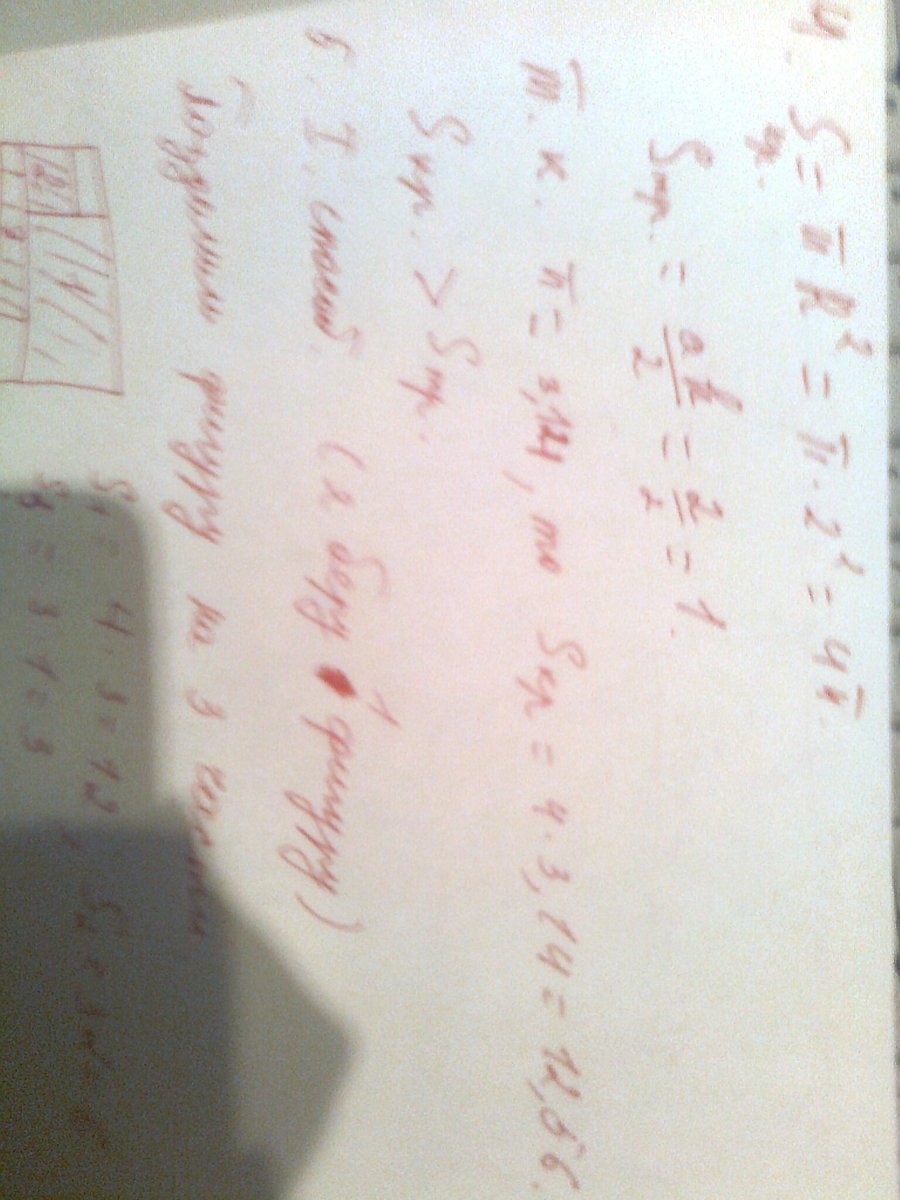 4. Sкр. = πR² = π · 2² = 4π.
Sтр. = ah/2 = 2/2 = 1.
т. к. π = 3,14, то Sкр = 4 · 3,14 = 12,56.
Sкр. > Sтр.
5. I. способ. (я беру 1 фигуру)
Поделим фигуру на 3 части
S₁ = 4 · 3 = 12
S₃ = 3 · 1 = 3